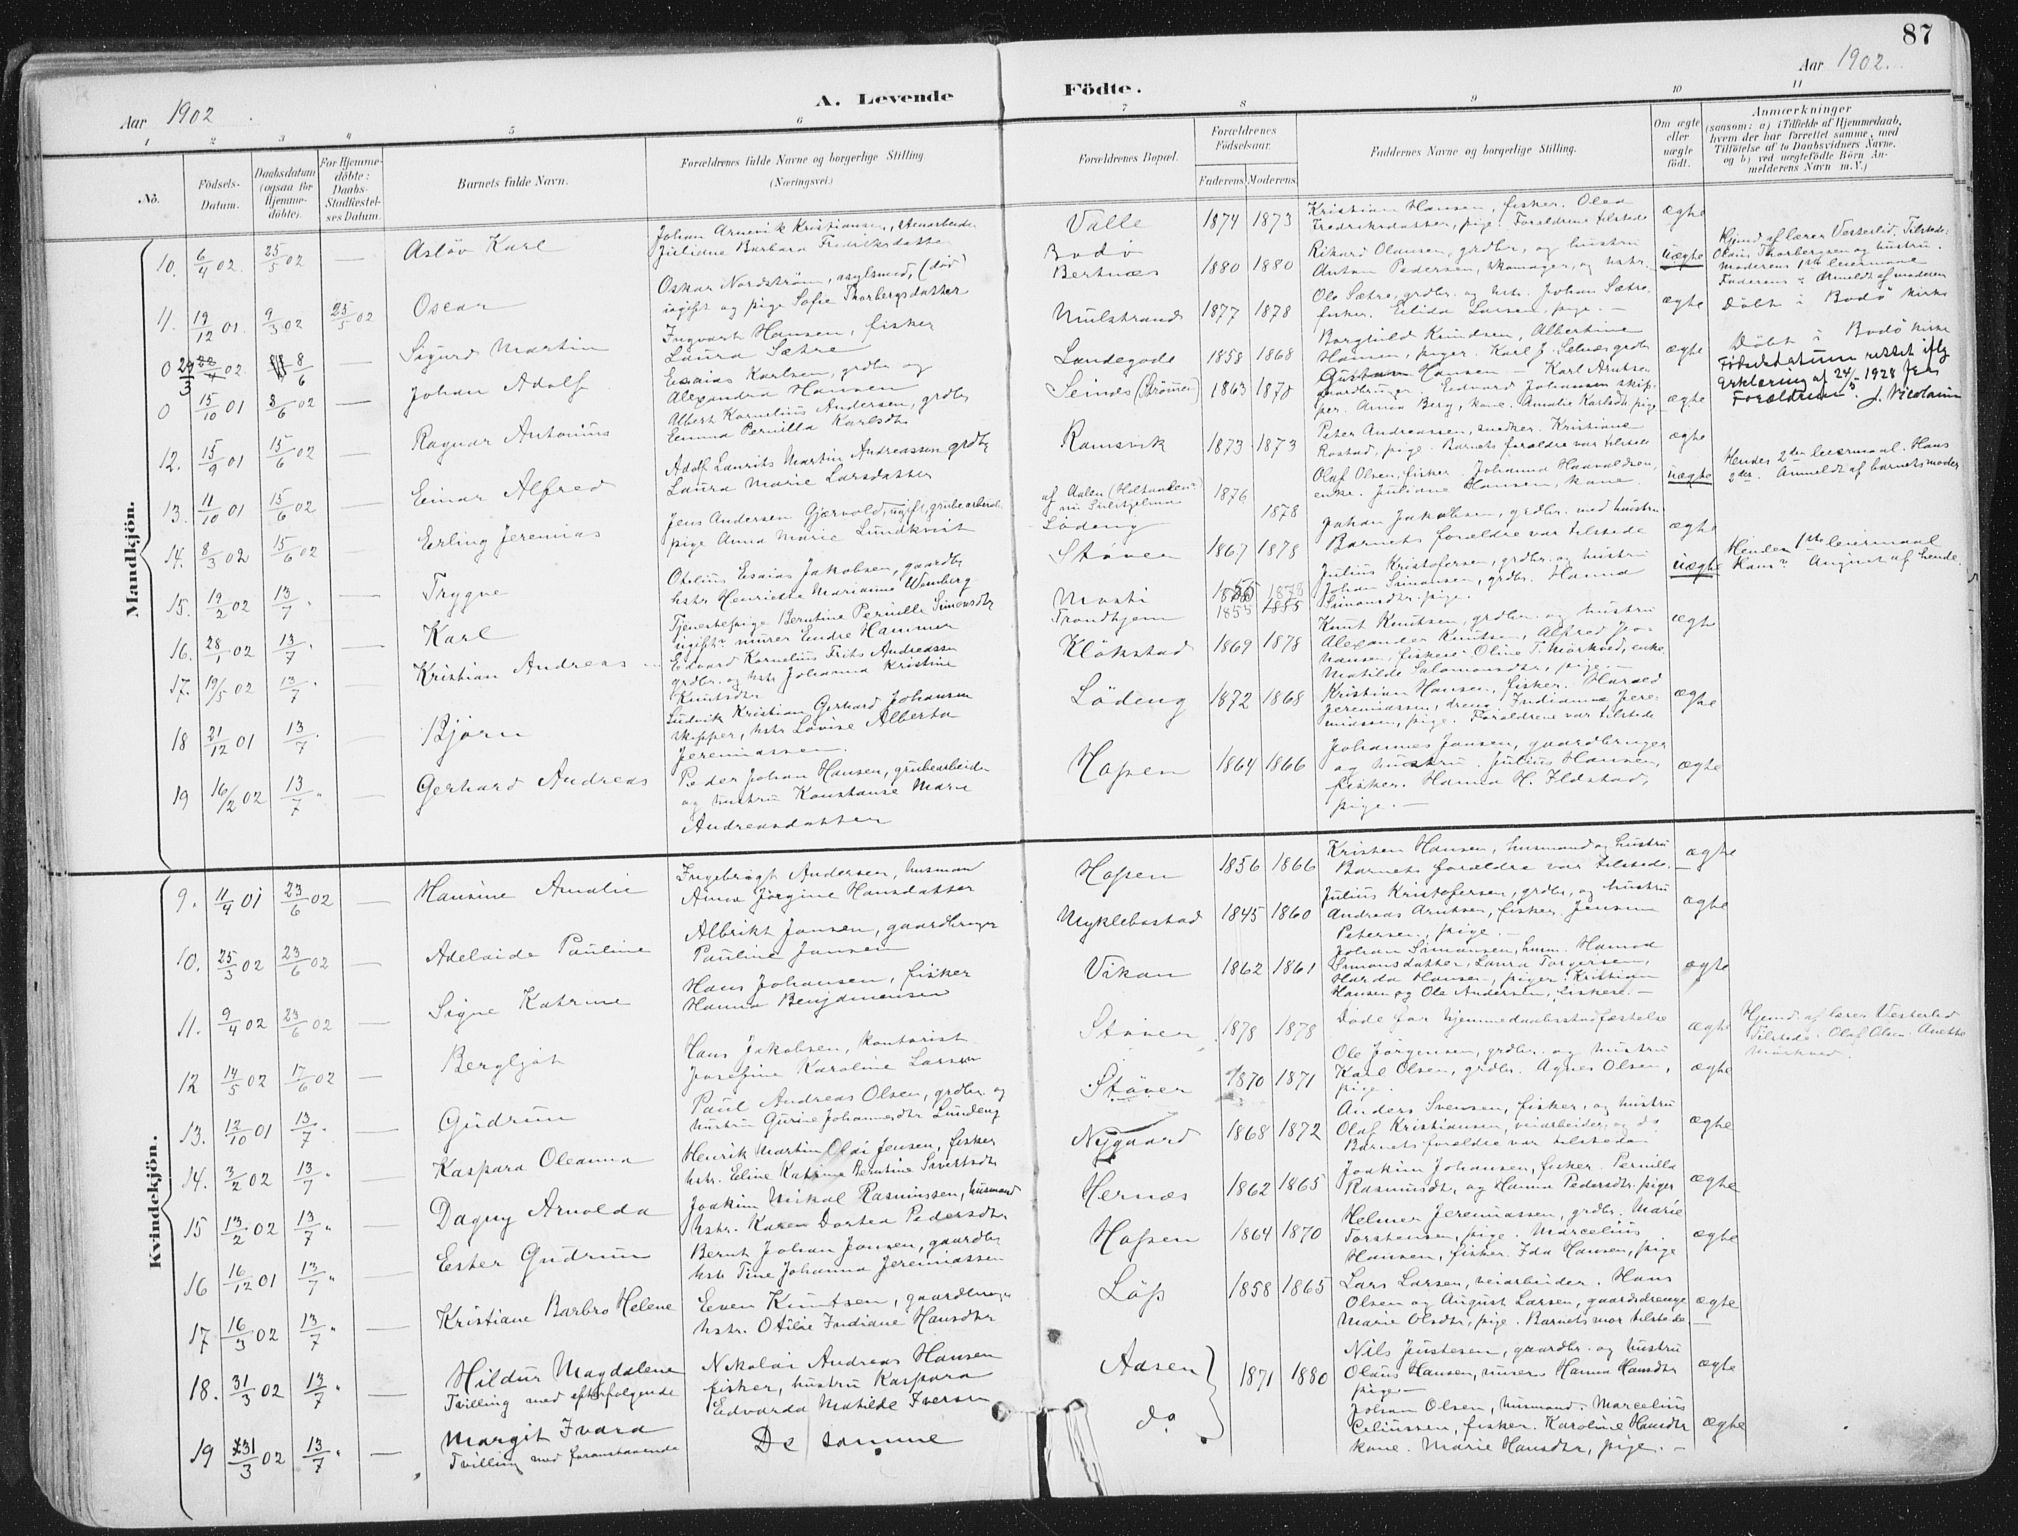 87
Aar 1902
A. Levende Födte.
Aar 1902.
1 2 3 4 5 6 7 8 9 10 11
No.
Födsels-Datum.
Daabsdatum (ogsaa for Hjemme-döbte).
For Hjemme-döbte: Daabs-Stadfæstel-ses Datum.
Barnets fulde Navn.
Forældrenes fulde Navne og borgerlige Stilling
(Næringsvei.)
Forældrenes Bopæl.
Forældrenes Födselsaar.
Faderens. Moderens.
Faddernes Navne og borgerlige Stilling.
Om ægte eller uægte födt.
Anmærkninger
(saasom: a) i Tilfælde af Hjemmedaab,
hvem der har forrettet samme, med
Tilföielse af to Daabsvidners Navne,
og b) ved uægtefödte Börn An-
melderens Navn m.V.)
Mandkjön.
10. 6/4 02 25/5 02 — Asløv Karl
Johan Arnevik Kristiansen,
Juliane Barbara Fredriksdatter
Valle 1874 1873
Kristian Hansen, fisker. Olea
Fredriksdatter, pige. Forældrene tilstede
ægte
11. 19/12 01 9/3 02 25/5 02 Oscar
Oskar Nordström, (død)
ugift og pige Sofie Thorbergsdatter
Bodø
Bertnæs 1880 1880
Rikard Olausen, grdbr. og hustru
Anton Pedersen, skomager, og hstr.
uægte
Hjemd. af lærer Vesterlid. Tilstede:
Olaus Thorbergsen og hustru.
Moderens 1ste leiermaal
Faderens 1. Anmeldt af moderen
0 29/3 02 8/6 — Sigurd Martin
Ingvart Hansen, fisker
Laura Sætre
Mulstrand 1877 1878
Ole Sætre, grdbr. og hstr. Johan Sætre
fisker. Elida Larsen, pige. —
ægte
Døbt i Bodø kirke
0 15/10 01 8/6 02 — Johan Adolf
Esaias Karlsen, grdbr og
Alexandra Hansen
Landegode 1858 1868
Borghild Knudsen, Albertine
Hansen, piger. Karl J. Selnæs grdbr
ægte
Døbt i Bodø kirke
Fødselsdatum rettet iflg
Erklæring af 24/5 1928 fra
Forældrene. J. Nicolaisen
12. 15/9 01 15/6 02 — Ragnar Antonius
Albert Kornelius Andersen, grdbr
Emma Pernilla Karlsdtr
Seines (Strømmen) 1863 1870
Gustava Hansen — Karl Arntsen
gaardbruger. Edvard Johansen skip-
per. Anna Berg, kone. Amalie Karlsdtr pige
ægte
13. 11/10 01 15/6 02 — Einar Alfred
Adolf Laurits Martin Andreassen grdbr
Laura Marie Larsdatter
Ramsvik 1873 1873
Peter Andreassen, snedker. Kristiane
Rostad, pige. Barnets forældre var tilstede
ægte
14. 8/3 02 15/6 02 — Erling Jeremias
Jens Andersen Gjærvold, ugift, grubearbeid.
pige Anna Marie Lundkvist
af Aalen (Holtaalen)
nu Sulitjelma
Løding 1876 1878
Olaf Olsen, fisker. Johanna Haavaldsen,
enke. Juliane Hansen, kone.
uægte
Hendes 2den leiermaal. Hans
2det. Anmeldt af barnets moder
15. 19/2 02 13/7 " — Trygve
Otelius Esaias Jakobsen, gaardbr
hstr Henriette Marianne Wamberg
Støver 1867 1878
Johan Jakobsen, grdbr. med hustru
Barnets forældre var tilstede
ægte
16. 28/1 02 13/7 " — Karl
Tjenestepige Berntine Pernille Simonsdtr
ugift murer Endre Hammer
Mosti 1878
Trondhjem 1855 1885
Julius Kristofersen, grdbr. og hustru
Johan Simonsen, grdbr. Hanna
Simonsdtr. pige.
uægte
Hendes 1ste leiermaal
Hans ? August af hende.
17. 19/5 02 13/7 " Kristian Andreas
Edvard Kornelius Frits Andreassen
grdbr. og hstr Johanna Kristine
Knutsdtr
Kløkstad 1869 1878
Knut Knutsen, grdbr. og hustru
Alexander Knutsen, Alfred Jo-
hansen, fiskere. Oline T. Mørkved, enke
Matilde Salomonsdtr, pige. —
ægte
18 21/12 01 13/7 " — Bjørn
Ludvik Kristian Gerhard Johansen
skipper, hstr Lovise Alberta
Jeremiassen.
Løding 1872 1868
Kristian Hansen, fisker. Harald
Jeremiassen, dreng. Indiana Jere-
miassen, pige. Forældrene var tilstede
ægte
19 16/2 02 13/7 " — Gerhard Andreas
Peder Johan Hansen, grubearbeider
og hustru Konstanse Marie
Andreasdatter
Hopen 1864 1866
Johannes Jansen, gaardbruger
og hustru. Julius Hansen,
fisker. Hanna H. Ildstad,
pige. —
ægte
Kvindekjön.
9. 11/4 01 23/6 02 — Hansine Amalie
Ingebrigt Andersen, husmand
Anna Jørgine Hansdatter
Hopen 1856 1866
Kristen Hansen, husmand og hustru
Barnets forældre var tilstede. —
ægte
10. 25/3 02 23/6 02 — Adelaide Pauline
Albrikt Jansen, gaardbruger
Pauline Jansen
Myklebostad 1845 1860
Julius Kristofersen, grdbr. og hustru
Andreas Arntsen, fisker. Jensine
Petersen, pige. —
ægte
11. 9/4 02 23/6 02 — Signe Katrine
Hans Johansen, fisker
Hanna Benjaminsen
Vikan 1862 1861
Johan Simonsen, husm. Hanna
Simonsdatter, Laura Torgersen,
Harda Hansen, piger. Kristian
Hansen og Ole Andersen, fiskere. —
ægte
12 14/5 02 17/6 02 — Bergljot
Hans Jakobsen, kontorist
Josefine Karoline Larsen
Støver 1878 1878
Døde før hjemmedaabsstadfæstelse
ægte
Hjemd. af lærer Vesterlid
Tilstede: Olaf Olsen. Anette
Mørkved.
13. 12/10 01 13/7 " — Gudrun
Paul Andreas Olsen, grdbr. og
hustru Gurine Johannesdtr Lundeng
Støver 1870 1871
Ole Jørgensen, grdbr. og hustru
Karl Olsen, grdbr. Agnes Olsen,
pige.
ægte
14. 3/2 02 13/7 " — Kaspara Oleanna
Henrik Martin Olai Jensen, fisker
hstr. Eline Katrine Berntine Sivertsdtr
Nygaard 1868 1872
Anders Svensen, fisker, og hustru
Olaf Kristiansen, veiarbeider, og do
Barnets forældre var tilstede
ægte
15 13/2 02 13/7 " — Dagny Arnolda
Joakim Mikal Rasmussen, husmand
hstr. Karen Dortea Pedersdtr
Hernæs 1862 1865
Joakim Johansen, fisker. Pernilla
Rasmusdtr, og Hanna Pedersdtr. piger
ægte
16 16/12 01 13/7 " — Ester Gudrun
Bernt Johan Jansen, gaardbr
hstr Tine Johanna Jeremiassen
Hopen 1864 1870
Helmer Jeremiassen, grdbr. Marie
Torstensen, pige. Marcelius
Hansen, fisker. Ida Hansen, pige
ægte
17 16/3 02 13/7 " — Kristiane Barbro Helene
Even Knutsen, gaardbruger
hstr. Otilie Indiane Hansdtr
Løp 1858 1865
Lars Larsen, veiarbeider. Hans
Olsen og August Larsen, gaardsdrenge
Marie Olsdtr, pige. Barnets mor tilstede. —
ægte
18. 31/3 02 13/7 " — Hildur Magdalene
Tvilling med efterfølgende
Nikolai Andreas Hansen
fisker, hustru Kaspara
Edvarda Matilde Iversen
Aasen 1871 1880
Nils Justesen, gaardbr. og hustru
Olaus Hansen, murer. Hanna Hansdtr
pige —
ægte
19 31/3 02 13/7 " — Margit Ivara
Tvilling med foranstaaende
De samme
do
Johan Olsen, husmand. Marcelius
Celiussen, fisker. Karoline Hansdtr
kone. Marie Hansdtr, pige. —
ægte